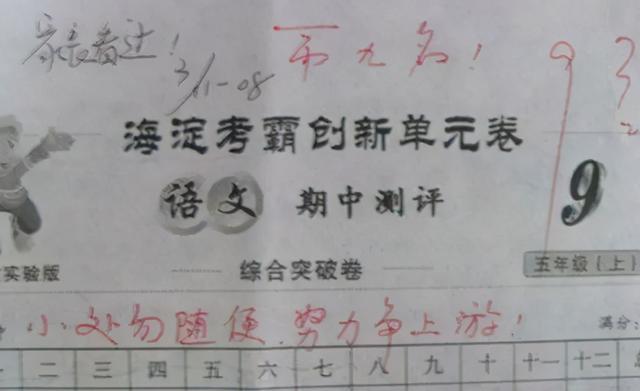 家长看过！
九名！
93
3/11-08
海淀考霸创新单元卷
语文 期中测评
9
实验版
综合突破卷
五年级(上)
小处勿随便.努力争上游！
满分:
二 三 四 五 六 七 八 九 十 十一 十二